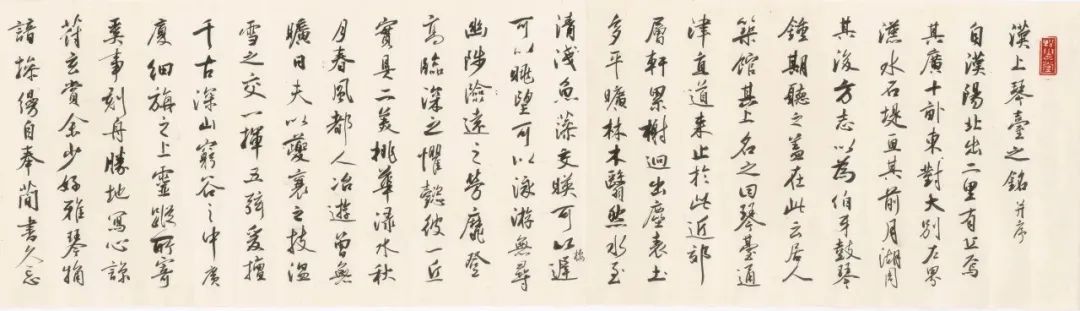 漢上琴臺之銘 并序
自漢陽北出二里有丘焉
其廣十畝東對大別左界
漢水石堤亘其前月湖周
其後方志以為伯牙鼓琴
鍾期聽之蓋在此云居人
築館其上名之曰琴臺通
津直道來止於此近郊
層軒累榭迥出塵表土
多平曠林木翳然水至
清淺魚藻交暎可以棲遲
可以眺望可以泳游無尋
幽陟險遠之勞靡登
高臨深之懼懿彼一丘
實具二美桃華淥水秋
月春風都人冶遊曾無
曠日夫以夔襄之技溫
雪之交一揮五弦爰擅
千古深山窮谷之中廣
廈細旃之上靈蹤所寄
奚事刻舟勝地寫心諒
符玄賞余少好雅琴觕
諳操縵自奉簡書久忘